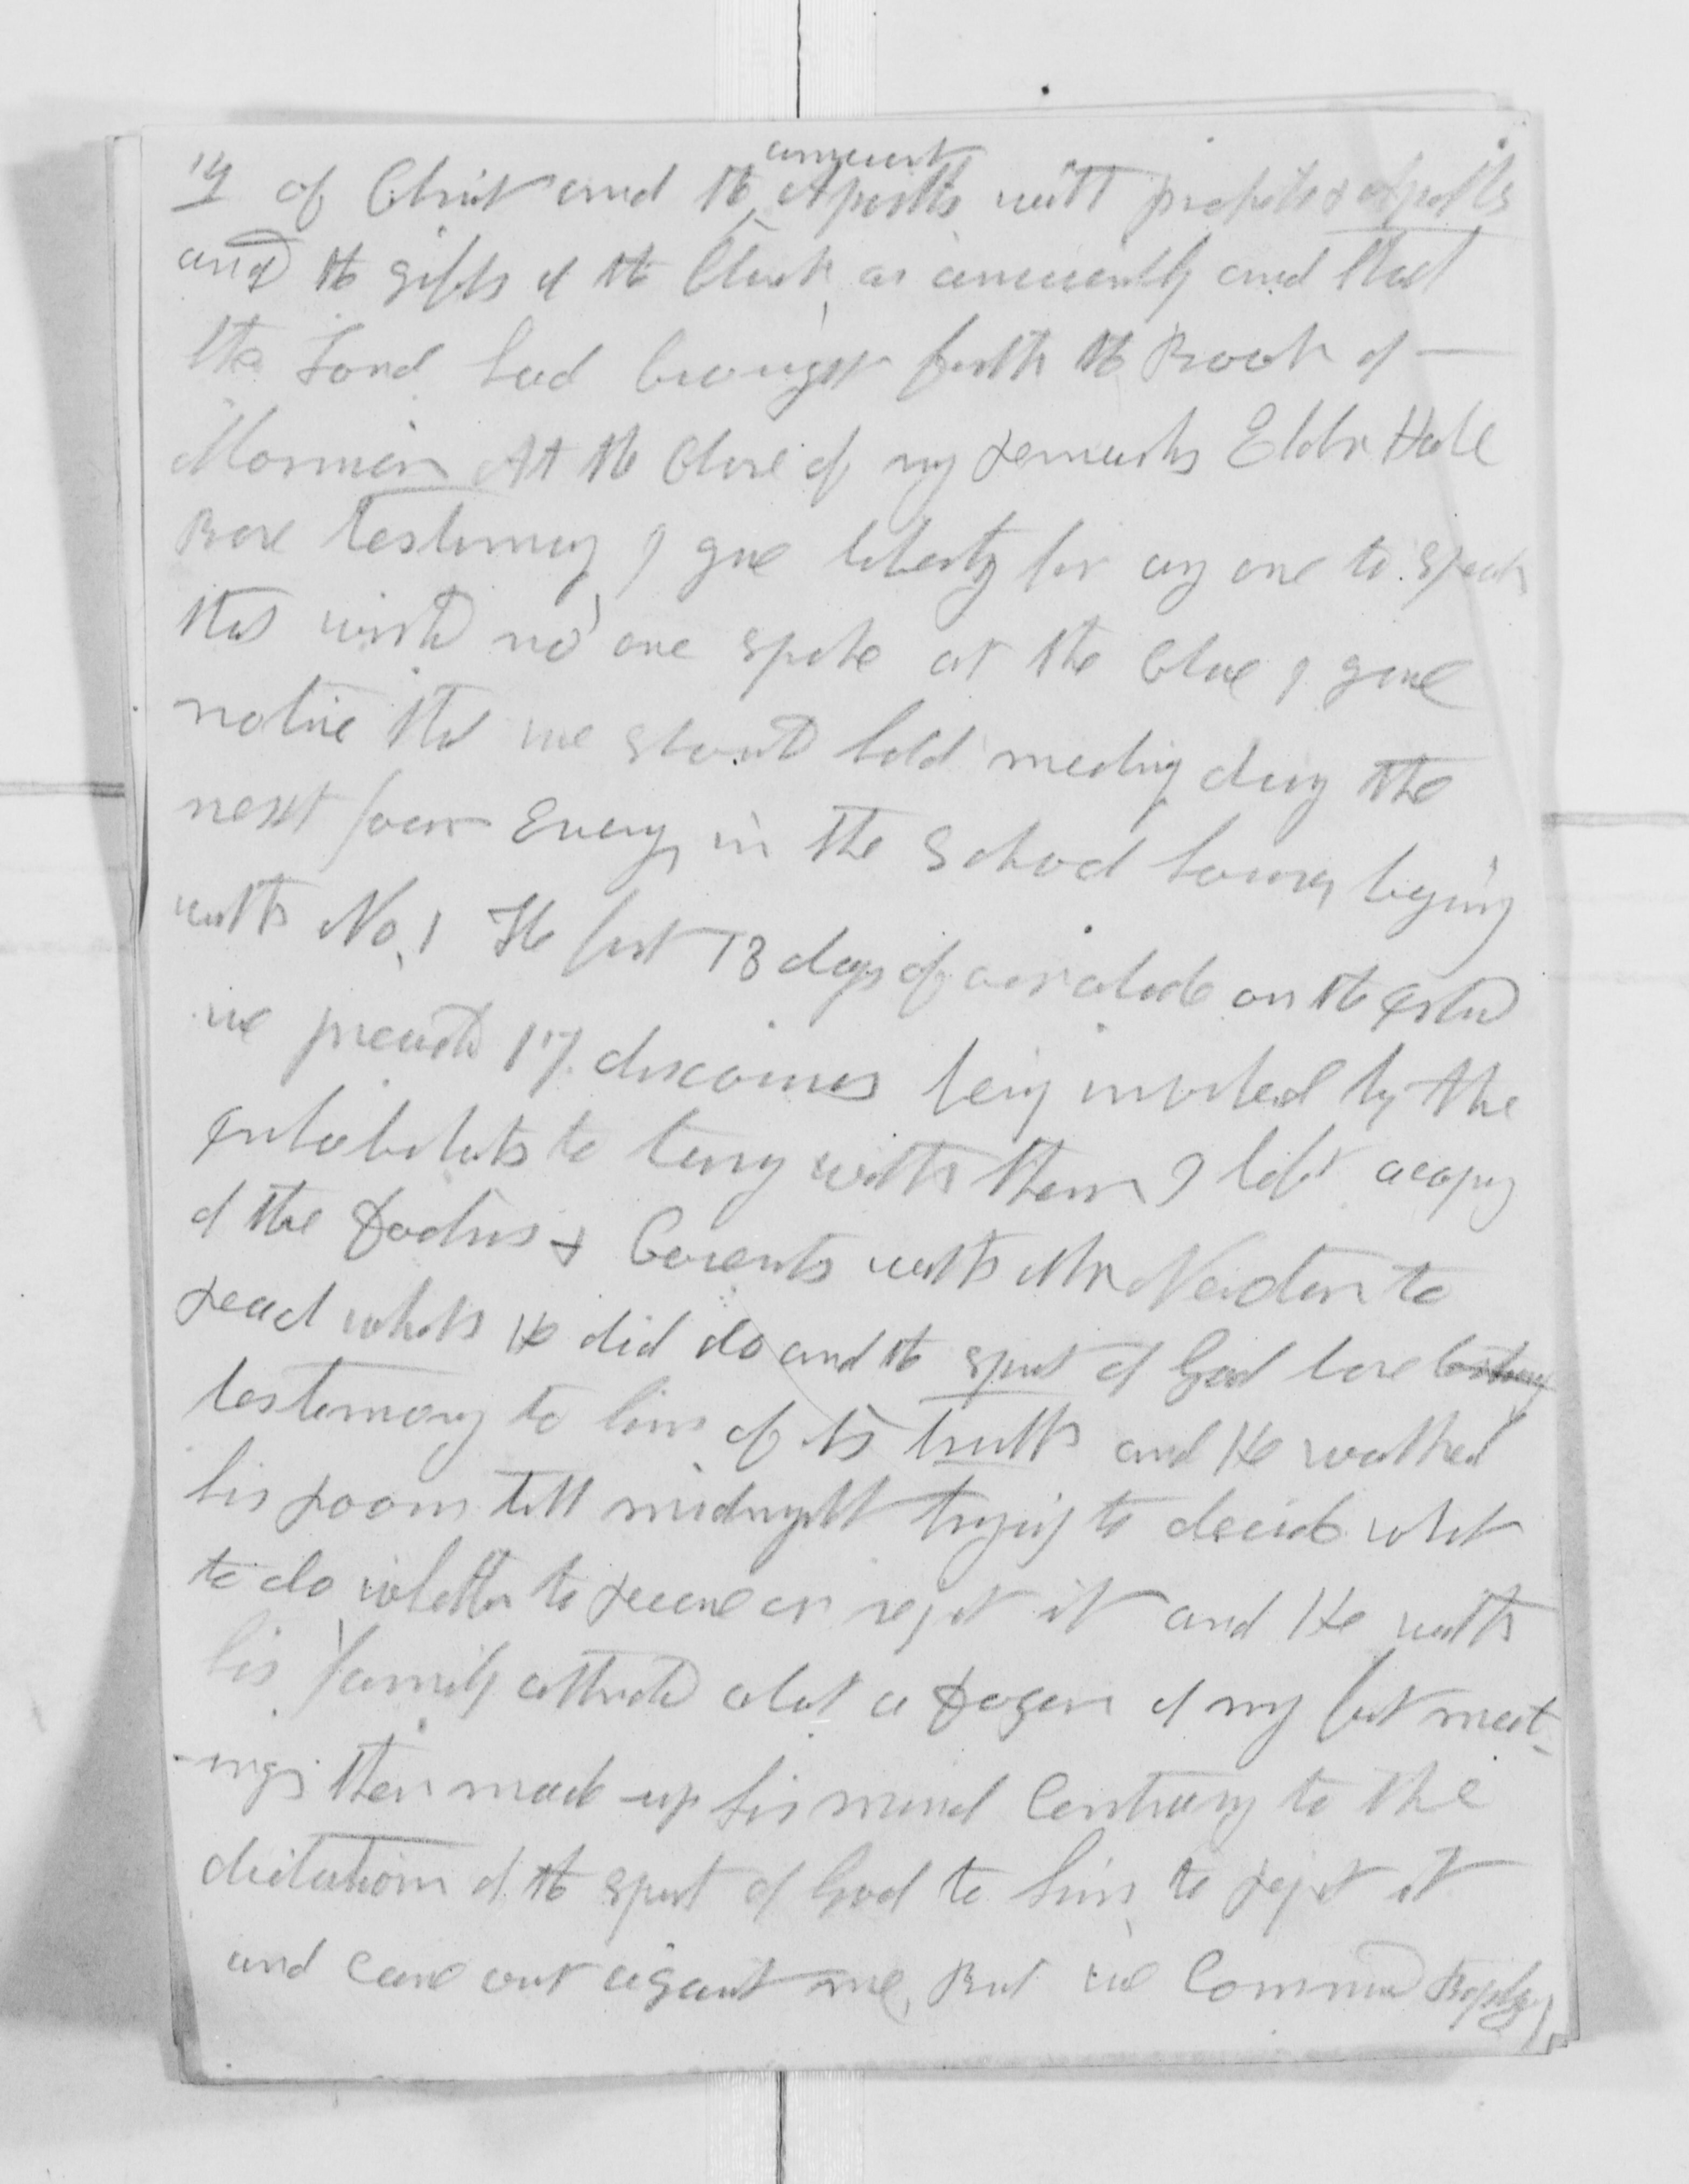 14 of Christ and the ancient Apostles with prophets & Apostles
and the gifts of the Church as anciently and that
the Lord had brought forth the Book of —
Mormon At the Close of my remarks Elder Hale
Bore testimony I gave liberty for any one to speak
that wishd no one spoke at the Close I gave
notice that we should hold meeting duing the
next four Evenig in the School houses begining
with No. 1 The first 13 days of our abode on the Island
we preachd 17 discourses being invited by the
inhabitats to tarry with them I left a copy
of the Doctrins & Covenants with Mr Newton to
read which He did do and the spirit of God bore testimony
testimony to him of its truth and He walked
his room till midnight trying to decide what
to do whether to receive or reject it and He with
his family attended about a dozen of my first meet-
-ings then made up his mind Contrary to the
dictations of the spirit of God to him to reject it
and came out against me, But we Commencd Baptizing